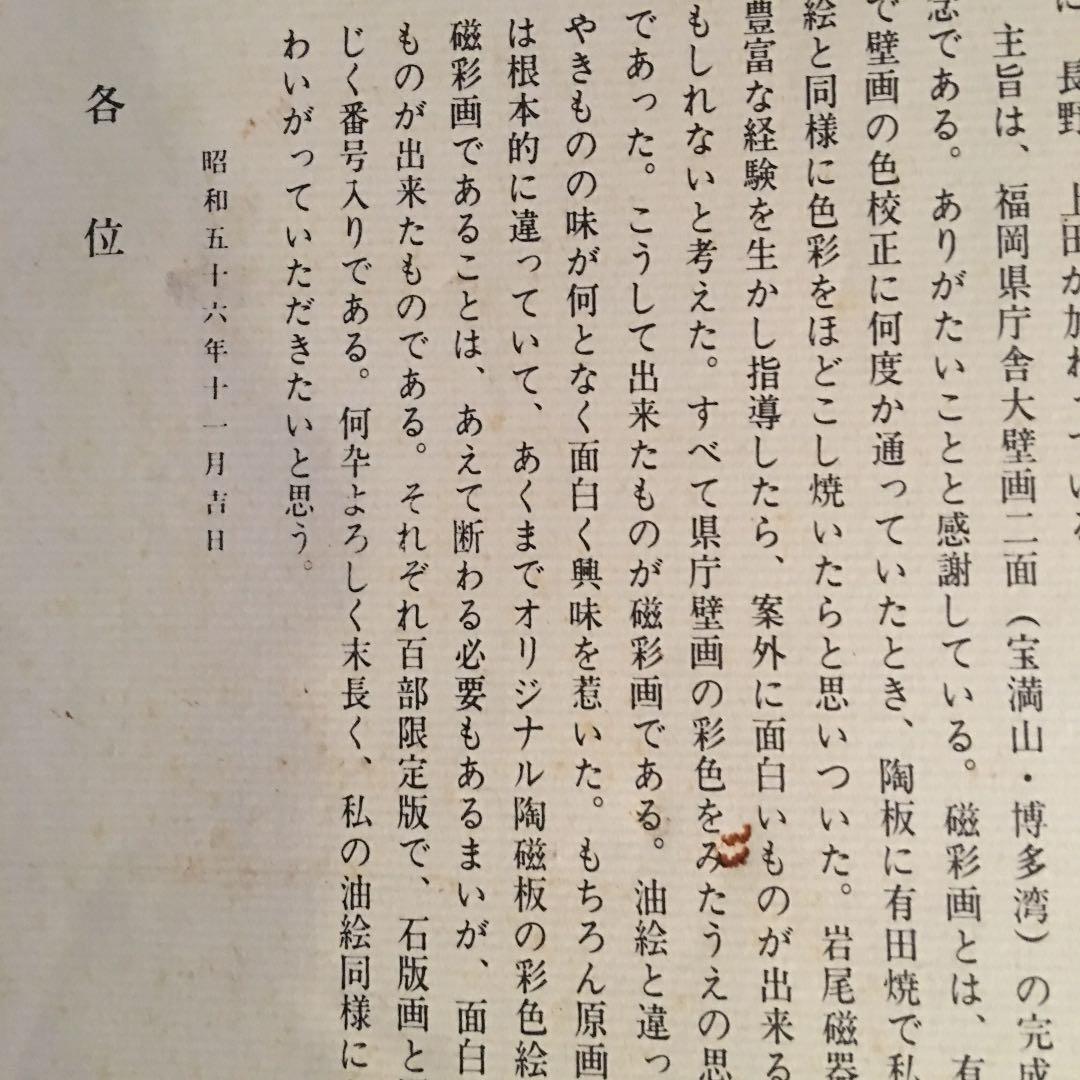 に 長野 上田が加わっている
主旨は、福岡県庁舎大壁画二面（宝満山・博多湾）の完成
念である。ありがたいことと感謝している。磁彩画とは、有
で壁画の色校正に何度か通っていたとき、陶板に有田焼で私
絵と同様に色彩をほどこし焼いたらと思いついた。岩尾磁器
豊富な経験を生かし指導したら、案外に面白いものが出来る
もしれないと考えた。すべて県庁壁画の彩色をみたうえの思
であった。こうして出来たものが磁彩画である。油絵と違っ
やきものの味が何となく面白く興味を惹いた。もちろん原画
は根本的に違っていて、あくまでオリジナル陶磁板の彩色絵
磁彩画であることは、あえて断わる必要もあるまいが、面白
ものが出来たものである。それぞれ百部限定版で、石版画と
じく番号入りである。何卆よろしく末長く、私の油絵同様に
わいがっていただきたいと思う。
昭和五十六年十一月吉日
各位